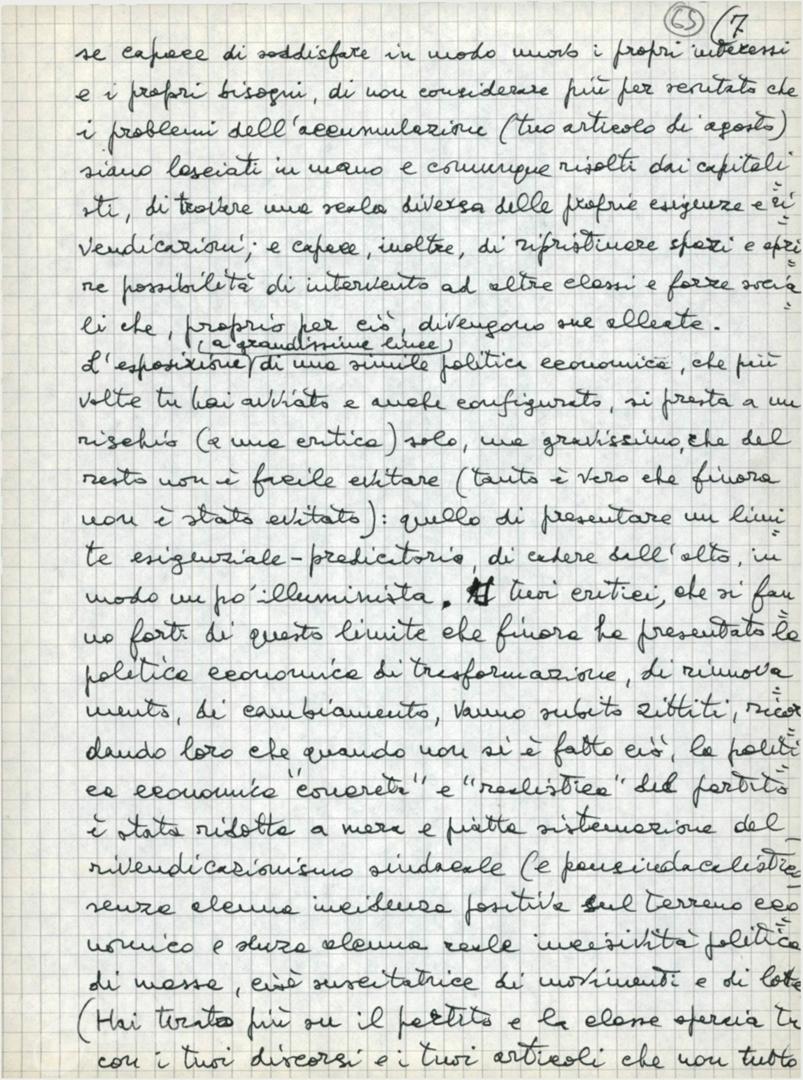 65 (7
se capace di soddisfare in modo nuovo i propri interessi
e i propri bisogni, di non considerare più per scontato che
i problemi dell'accumulazione (tuo articolo di agosto)
siano lasciati in mano e comunque risolti dai capitali
sti, di trovare una scala diversa delle proprie esigenze e ri
vendicazioni; e capace, inoltre, di ripristinare spazi e apri
re possibilità di intervento ad altre classi e forze socia
li che, proprio per ciò, divengono sue alleate.
(a grandissime linee)
L'esposizione di una simile politica economica, che più
volte tu hai avviato e anche configurato, si presta a un
rischio (a una critica) solo, ma gravissimo, che del
resto non è facile evitare (tanto è vero che finora
non è stato evitato): quello di presentare un limi
te esigenziale-predicatorio, di cadere dall'alto, in
modo un po' illuminista. I tuoi critici, che si fan
no forti di questo limite che finora ha presentato la
politica economica di trasformazione, di rinnova
mento, di cambiamento, vanno subito zittiti, ricor
dando loro che quando non si è fatto ciò, la politi
ca economica "concreta" e "realistica" del partito
è stata ridotta a mera e piatta sistemazione del
rivendicazionismo sindacale (e pansindacalista
senza alcuna incidenza positiva sul terreno eco
nomico e senza alcuna reale incisività politica
di massa, cioè suscitatrice di movimenti e di lotte
(Hai tirato più su il partito e la classe operaia tu
con i tuoi discorsi e i tuoi articoli che non tutto